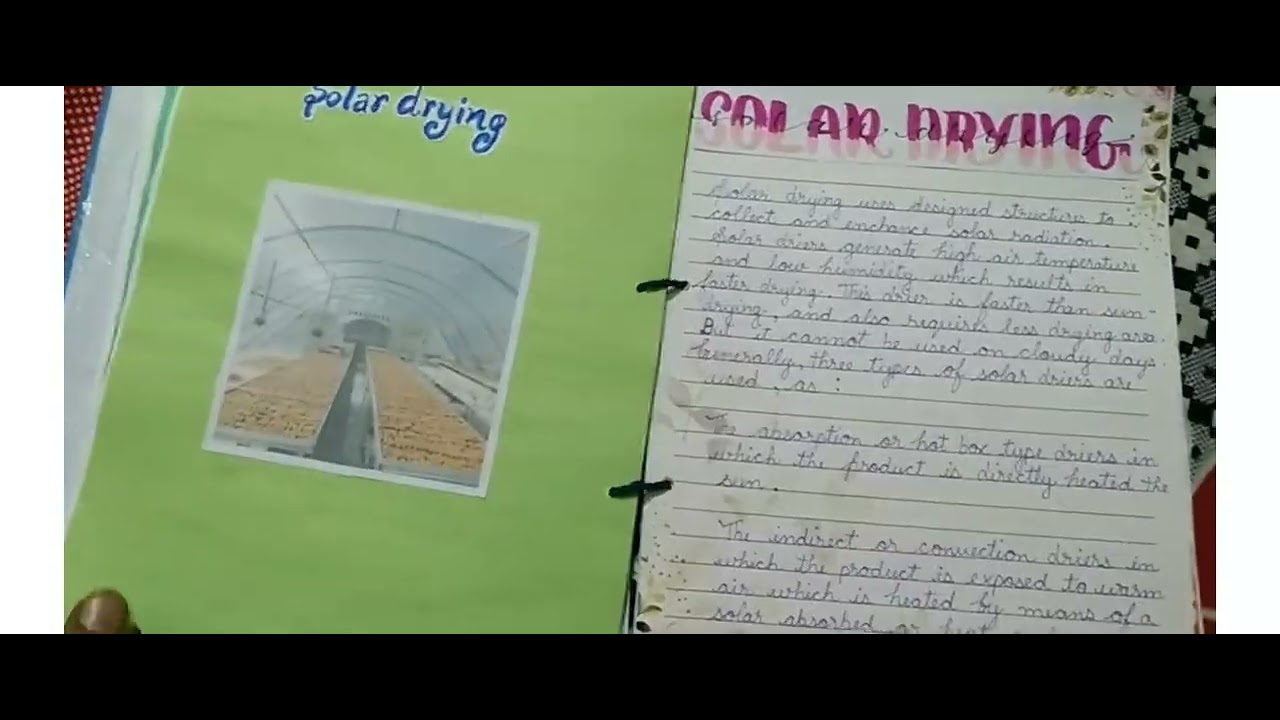 Solar drying
SOLAR DRYING
Solar drying uses designed structures to
collect and enchance solar radiation.
Solar driers generate high air temperature
and low humidity which results in
faster drying. This drier is faster than sun-
drying, and also requires less drying area.
But it cannot be used on cloudy days.
Generally, three types of solar driers are
used, as :
The absorption or hot box type driers in
which the product is directly heated the
sun.
The indirect or convection driers in
which the product is exposed to warm
air which is heated by means of a
solar absorbed or heat